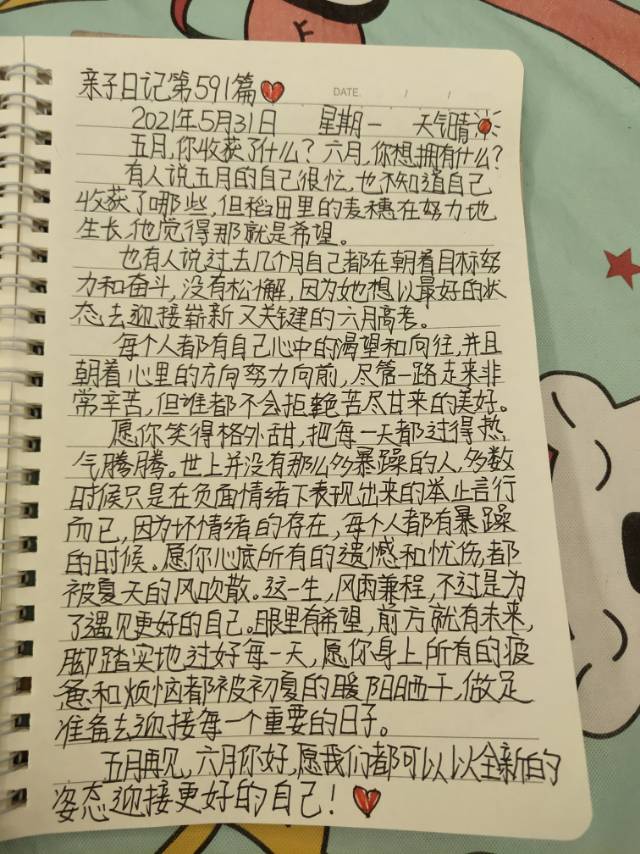 DATE. / /
亲子日记第591篇
2021年5月31日 星期一 天气晴
五月,你收获了什么?六月,你想拥有什么?
有人说五月的自己很忙,也不知道自己
收获了哪些,但稻田里的麦穗在努力地
生长,他觉得那就是希望。
也有人说过去几个月自己都在朝着目标努
力和奋斗,没有松懈,因为她想以最好的状
态去迎接崭新又关键的六月高考。
每个人都有自己心中的渴望和向往,并且
朝着心里的方向努力向前,尽管一路走来非
常辛苦,但谁都不会拒绝苦尽甘来的美好。
愿你笑得格外甜,把每一天都过得热
气腾腾。世上并没有那么多暴躁的人,多数
时候只是在负面情绪下表现出来的举止言行
而已,因为坏情绪的存在,每个人都有暴躁
的时候。愿你心底所有的遗憾和忧伤,都
被夏天的风吹散。这一生,风雨兼程,不过是为
了遇见更好的自己。眼里有希望,前方就有未来,
脚踏实地过好每一天,愿你身上所有的疲
惫和烦恼都被初夏的暖阳晒干,做足
准备去迎接每一个重要的日子。
五月再见,六月你好,愿我们都可以以全新的
姿态迎接更好的自己!